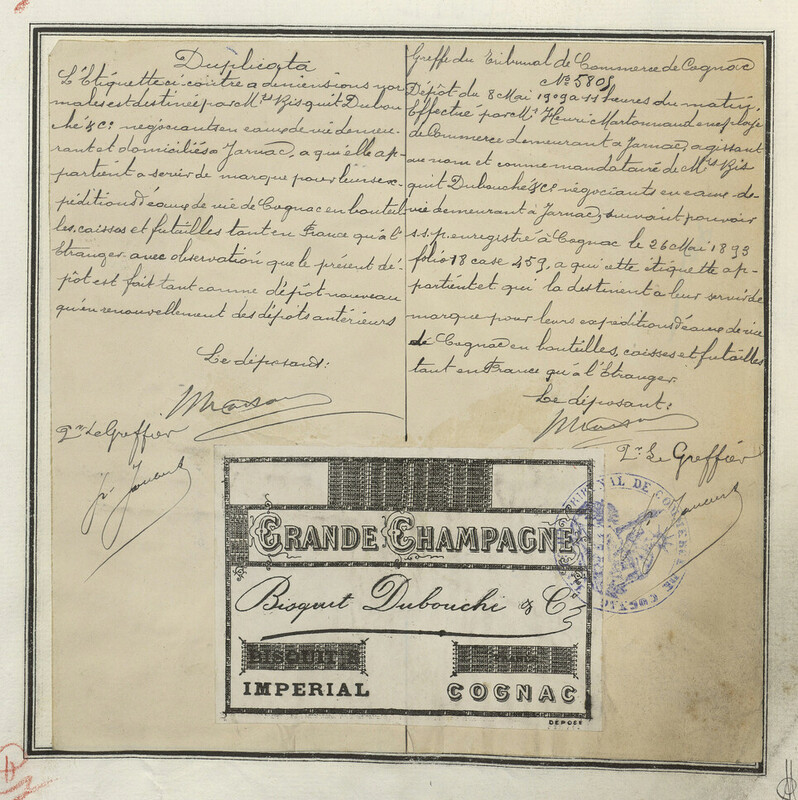 Duplicata
L'Etiquette ci-contre a dimensions nor
males est destinée par Mrs Bisquit Dubou
ché & Cie négociants en eaux de vie demeu
rant et domiciliés à Jarnac, a qu'elle ap-
partient a servir de marque pour leurs ex-
péditions d'eaux de vie de Cognac en bouteil
les, caisses et futailles tant en France qu'à l'
Etranger. avec observation que le présent dé-
pôt est fait tant comme dépôt nouveau
qu'en renouvellement des dépôts antérieurs
Le déposant:
Pr Le Greffier
Greffe du Tribunal de Commerce de Cognac
No 5808
Dépôt du 8 Mai 1909 a 11 heures du matin,
Effectué par Mr Henri Martonnaud employé
de Commerce demeurant à Jarnac, agissant
au nom et comme mandataire de Mrs Bis
quit Dubouché & Cie négociants en eaux-de-
vie demeurant à Jarnac, suivant pouvoir
s.s.p. enregistré à Cognac le 26 Mai 1893
folio 18 case 459, a qui cette étiquette ap-
partient et qui la destinent a leur servir de
marque pour leurs expéditions d'eaux de vie
de Cognac en bouteilles, caisses et futailles
tant en France qu'à l'Etranger.
Le déposant:
Pr Le Greffier
GRANDE CHAMPAGNE
Bisquit Dubouché & Co
BISQUIT'S
IMPERIAL
COGNAC
DEPOSÉ
TRIBUNAL DE COMMERCE DE COGNAC